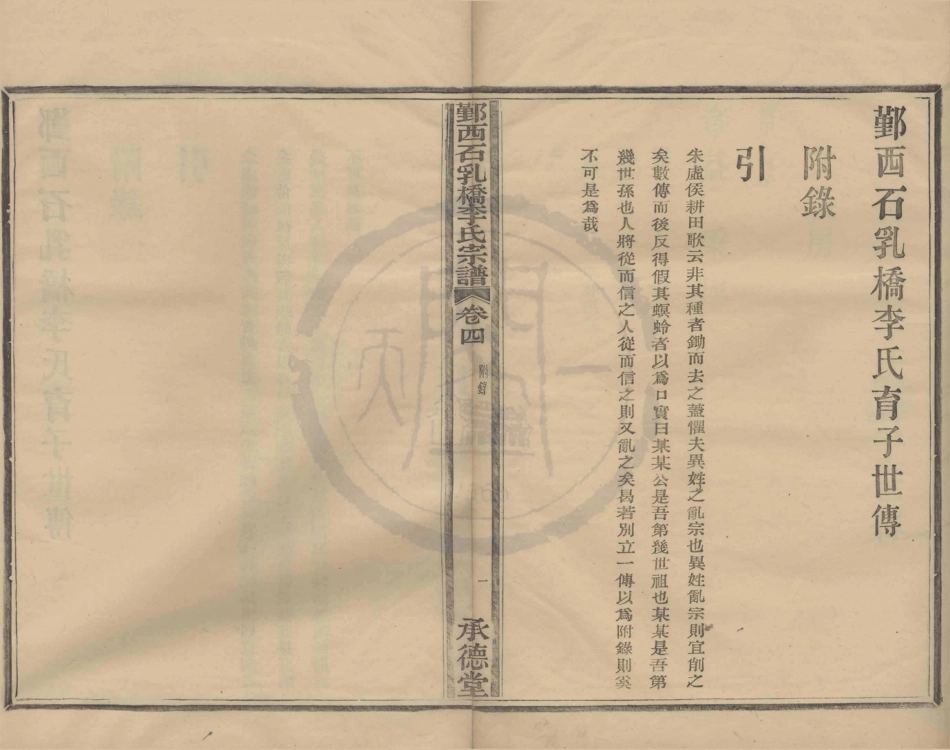 鄞西石乳橋李氏育子世傳
附錄
引
朱虛侯耕田歌云非其種者鋤而去之蓋懼夫異姓之亂宗也異姓亂宗則宜削之
矣數傳而後反得假其螟蛉者以爲口實曰某某公是吾第幾世祖也某某是吾第
幾世孫也人將從而信之人從而信之則又亂之矣曷若別立一傳以爲附錄則奚
不可是爲哉
鄞西石乳橋李氏宗譜
卷四
附錄
一
承德堂